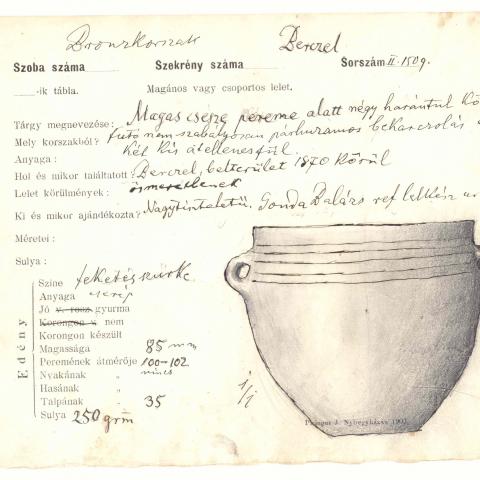 Bronzkorszak Berczel
Szoba száma Szekrény száma Sorszám II. 1509.
-ik tábla. Magános vagy csoportos lelet.
Tárgy megnevezése: Magas csésze pereme alatt négy harántul
Mely korszakból? futó nem szabályosan párhuzamos bekarczolás
Anyaga: két kis átellenes fül.
Hol és mikor találtatott? Berczel, belterület 1870 körül
Lelet körülmények: ismeretlenek
Ki és mikor ajándékozta? Nagytiszteletű Gonda Balázs ref lelkész
Méretei:
Sulya:
Edény
Szine feketés szürke
Anyaga cserép
Jó v. rosz gyurma
Korongon v. nem
Korongon készült
Magassága 85 mm
Peremének átmérője 100–102
Nyakának " nincs
Hasának "
Talpának " 35
Sulya 250 grm
1/1
Piringer J. Nyiregyháza 1901.